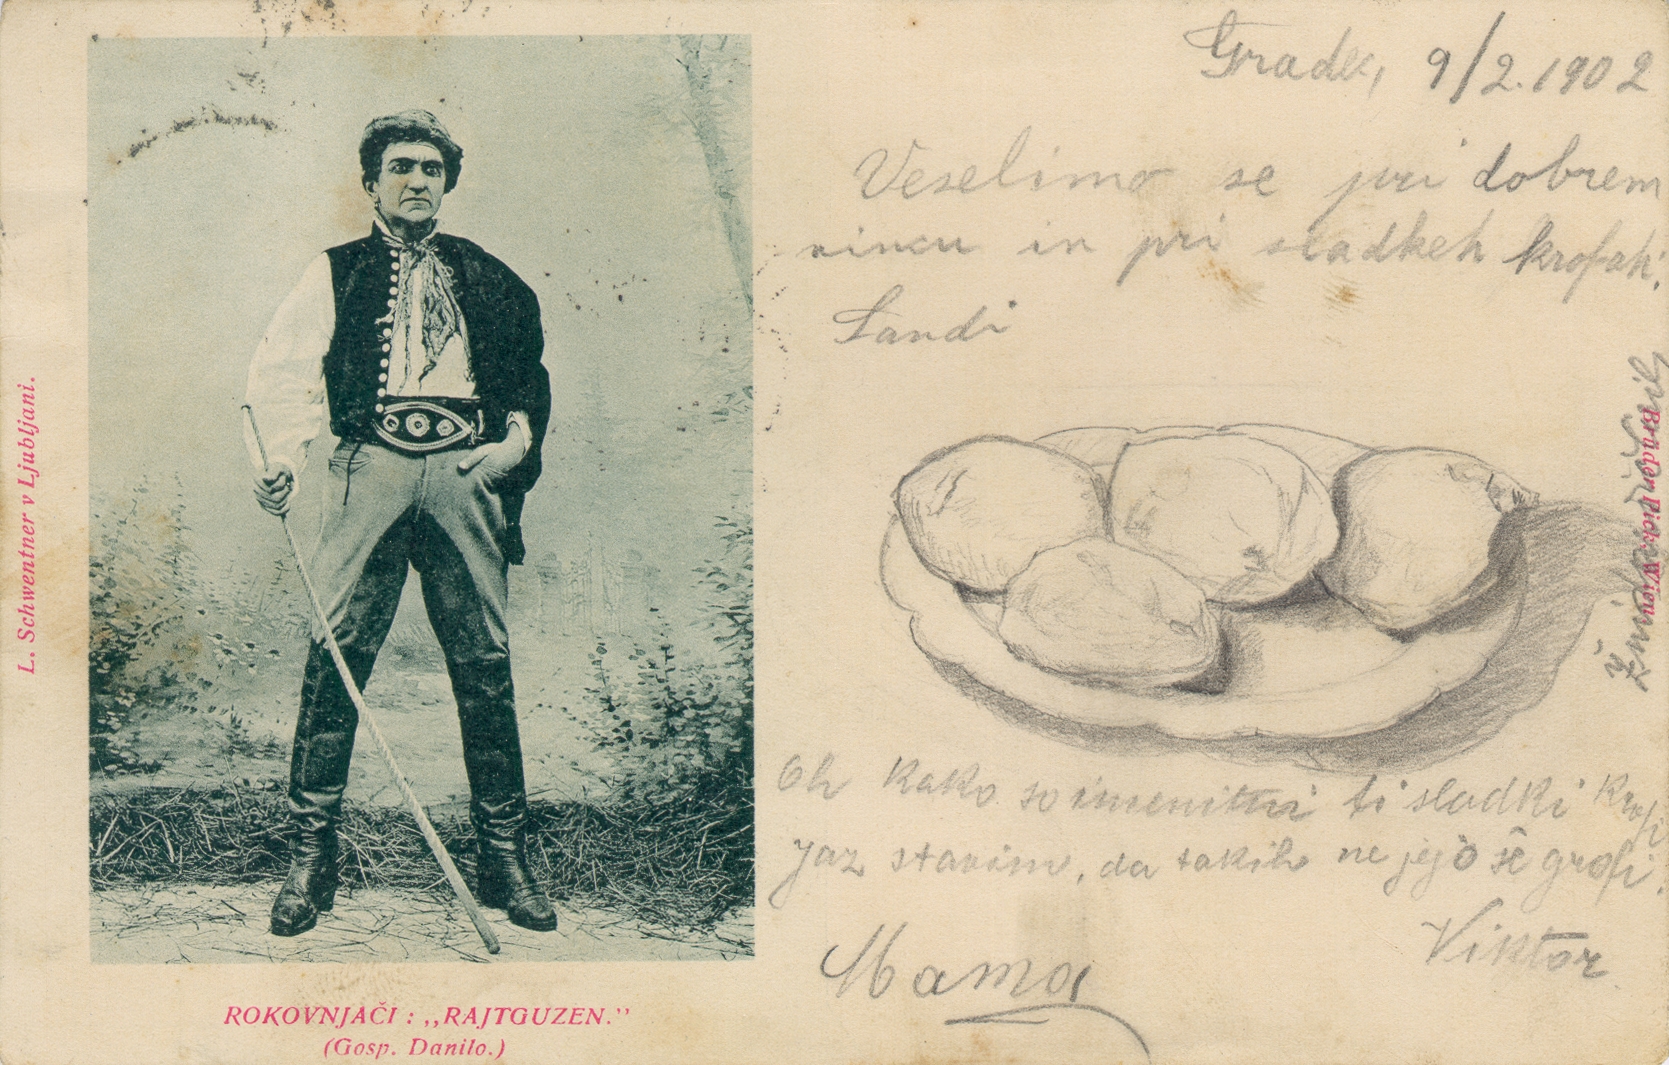 L. Schwentner v Ljubljani.
ROKOVNJAČI : „RAJTGUZEN.”
(Gosp. Danilo.)
Gradec, 9/2. 1902
Veselimo se pri dobrem
vincu in pri sladkeh krofah.
Sandi
Bruder Wien
Oh kako so imenitni ti sladki krofi
jaz stavim, da takih ne jejo še grofi.
Viktor
Mama